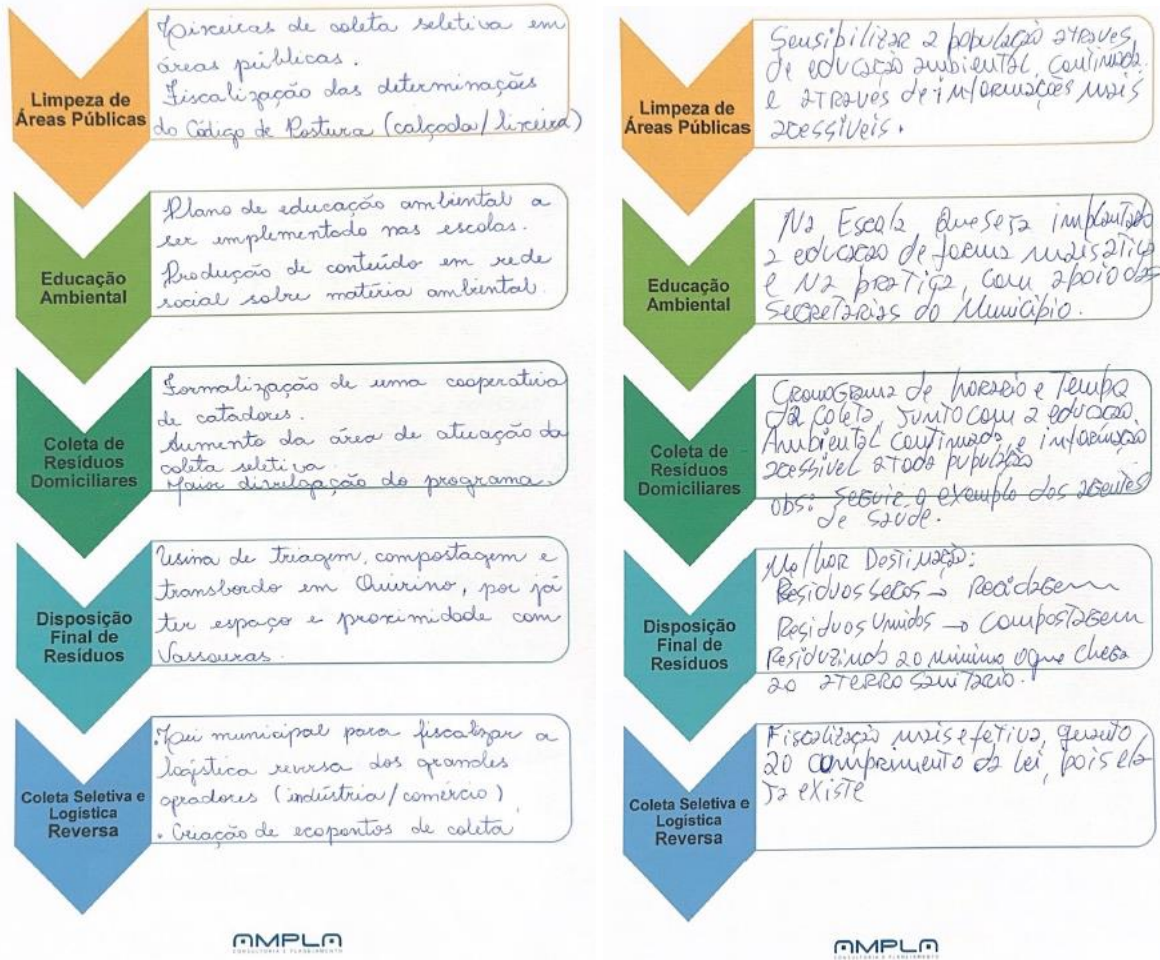 Limpeza de
Áreas Públicas
Lixeiras de coleta seletiva em
áreas públicas.
Fiscalização das determinações
do Código de Postura (calçada/lixeira)
Educação
Ambiental
Plano de educação ambiental a
ser implementado nas escolas.
Produção de conteúdo em rede
social sobre matéria ambiental.
Coleta de
Resíduos
Domiciliares
Formalização de uma cooperativa
de catadores.
Aumento da área de atuação da
coleta seletiva.
Maior divulgação do programa.
Disposição
Final de
Resíduos
Usina de triagem, compostagem e
transbordo em Quirino, por já
ter espaço e proximidade com
Vassouras.
Coleta Seletiva e
Logística
Reversa
. Lei municipal para fiscalizar a
logística reversa dos grandes
geradores (indústria/comércio)
. Criação de ecopontos de coleta
AMPLA
CONSULTORIA E PLANEJAMENTO
Limpeza de
Áreas Públicas
Sensibilizar a população através
de educação ambiental, continuada
e através de informações mais
acessíveis.
Educação
Ambiental
Na Escola que seja implantado
a educação de forma mais
e na pratica, com apoio das
Secretarias do Município.
Coleta de
Resíduos
Domiciliares
Cronograma de horário e tempo
da coleta, junto com a educação
Ambiental continuada, e informação
acessível a toda população
obs: seguir o exemplo dos agentes
de saúde.
Disposição
Final de
Resíduos
Melhor Destinação:
Resíduos Secos → Reciclagem
Resíduos Umidos → Compostagem
Residuzindo ao minimo o que chega
ao aterro sanitario.
Coleta Seletiva e
Logística
Reversa
Fiscalização mais efetiva, quanto
ao comprimento da lei, pois ela
ja existe
AMPLA
CONSULTORIA E PLANEJAMENTO